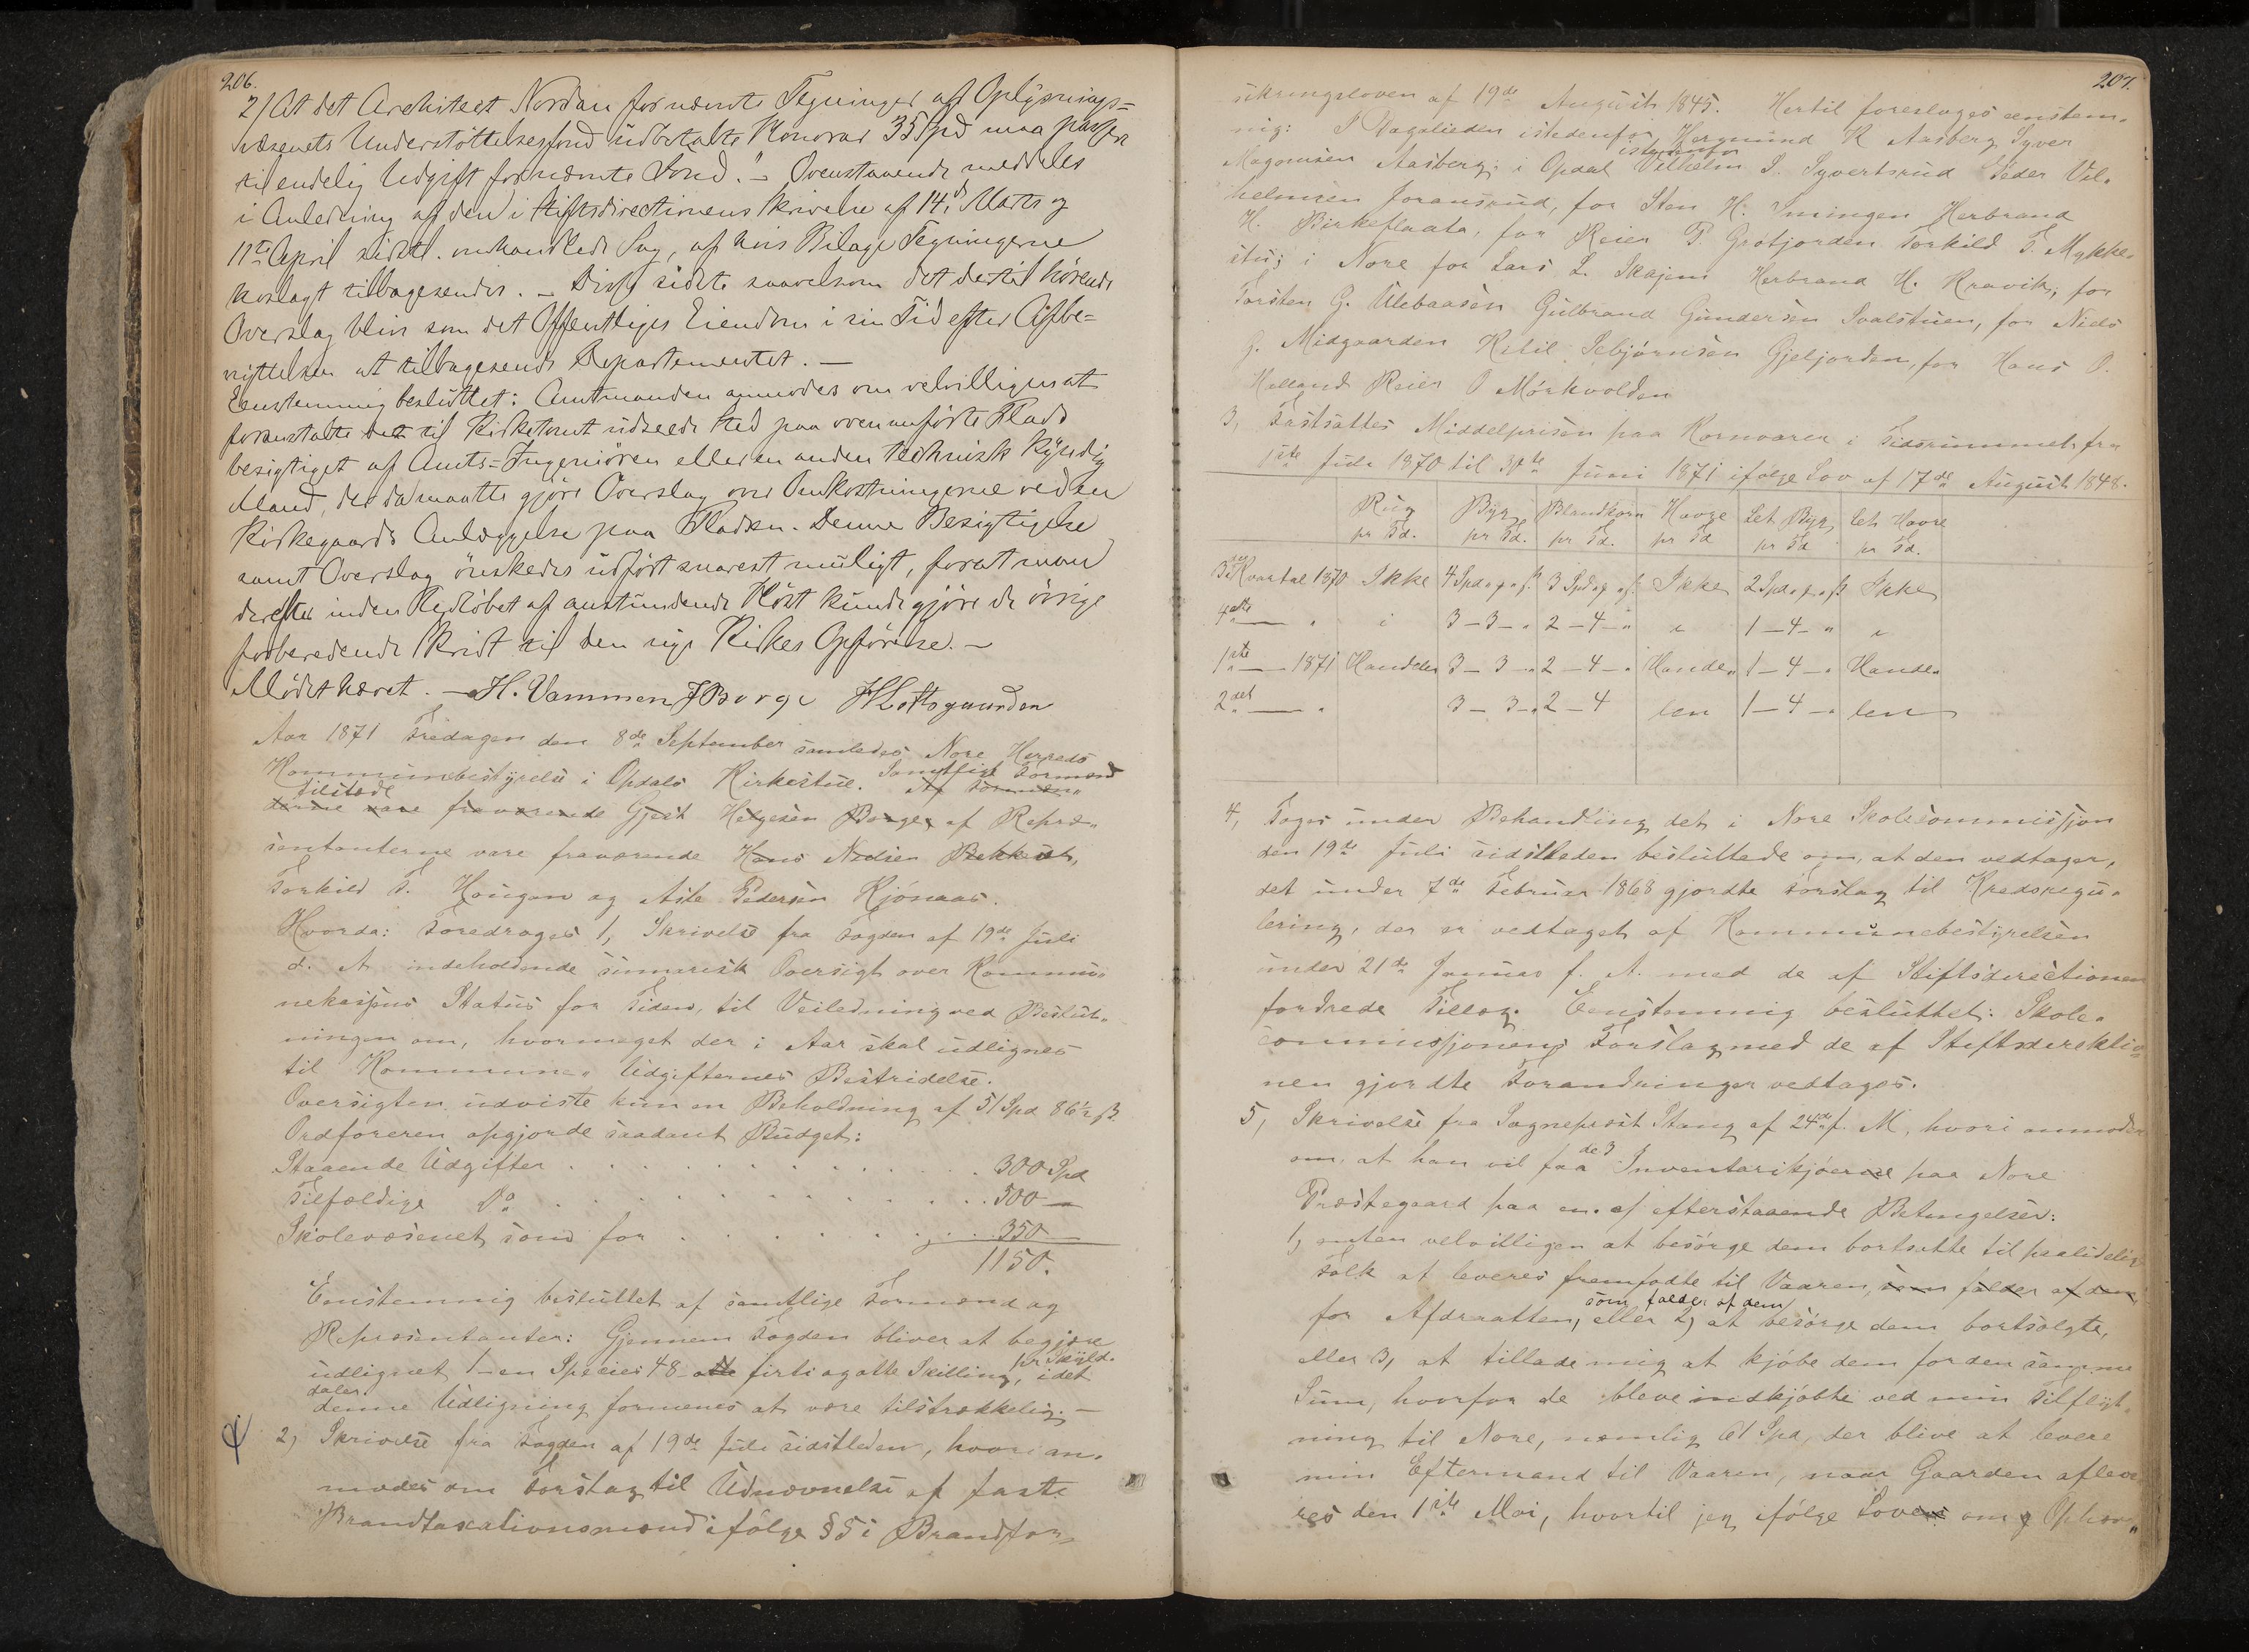 206.
2) At det Architect Nordan for nævnte Tegninger af Oplysnings=
væsenets Understøttelsesfond udbetalte Honorar 35 Spd maa passere
til endelig Udgift for nævnte Fond." – Ovenstaaende meddeles
i Anledning af den i Stiftsdirectionens Skrivelse af 14de Marts og
11te April sidstl. omhandlede Sag, af hvis Bilage Tegningerne
hoslagt tilbagesendes. – Disse sidste saavelsom det dertil hørende
Overslag blive som det Offentliges Eiendom i sin Tid efter Afbe=
nyttelsen at tilbagesende Departementet. –
Eenstemmig besluttet: Amtmanden anmodes om velvilligen at
foranstalte det til Kirketomt udseede Sted paa ovenanførte Plads
besigtiget af Amts=Ingeniören eller en anden technisk kyndig
Mand, der da maatte gjöre Overslag over Omkostningerne ved en
Kirkegaards Anlæggelse paa Pladsen. Denne Besigtigelse
samt Overslag önskedes udfört snarest muligt, forat man
derefter inden Udløbet af anstundende Høst kunde gjöre de övrige
forberedende Skridt til den nye Kirkes Opförelse. –
Mødet hævet. – H. Vammen J Borge
Aar 1871 Fredagen den 8de September samledes Nore Herreds
Kommunebestyrelse i Opdals Kirkestue. Samtlige Formænd
tilstede
dene vare fraværende Gjest Helgesen Borge, af Repræ„
sentanterne vare fraværende Hans Nielsen Bekkeseth,
Torkild T. Hougen og Aste Pedersen Kjönaas.
Hvorda: Foredroges 1, Skrivelse fra Fogden af 19de Juli
d. A. indeholdende summarisk Oversigt over Kommu„
nekassens Status for Tiden, til Veiledning ved Beslut„
ningen om, hvormeget der i Aar skal udlignes
til Kommune„ Udgifternes Bestridelse.
Oversigten udviste kun en Beholdning af 51 Spd 86½ ß.
Ordføreren opgjorde saadant Budget:
Staaende Udgifter . . . . 300 Spd
Tilfældige Do . . . . 500 –
Skolevæsenet som for . . . . 350 –
1150.
Eenstemmig besluttet af samtlige Formænd og
Repræsentanter: Gjennem Fogden bliver at begjære
udlignet 1 – en Species 48 – otte firti og otte Skilling, pr Skyld„ idet
daler
denne Udligning formenes at være tilstrækkelig. –
2) Skrivelse fra Fogden af 19de Juli sidstleden, hvori an„
modes om Forslag til Udnævnelse af faste
Brandtaxationsmænd ifölge § 5 i Brandfor„
207.
sikringsloven af 19de August 1845. Hertil foresloges eenstem„
mig: I Dagalieden istedenfor Hergmund K Aasberg Syver
Magomsen Aasberg; i Opdal istedenfor Vilhelm S. Syvertsrud Peder Vil„
helmsen Joransrud, for Sten H. Imingen Herbrand
H. Birkeflaata, for Reier P. Grötjorden Torkild T. Mykke„
stu; i Nore for Lars L. Skajem Herbrand H. Kravik, for
Torsten G. Ulebaasen Gulbrand Gundersen Svalstuen, for Niels
G. Midgaarden Ketil Sebjörnsen Gjeljorden, for Hans O.
Halland Reier O Mörkvolden
3, Fastsattes Middelprisen paa Kornvarer i Tidsrummet fra
1ste Juli 1870 til 30te Juni 1871 ifølge Lov af 17de August 1848.
Rug Byg Blandkorn Havre Let Byg, let Havre
pr Td. pr Td. pr Td. pr Td pr Td pr Td.
3die Kvartal 1870 Ikke 4 Spd „ „ ß 3 Spd „ „ ß. Ikke 2 Spd „ „ ß Ikke
4de — „ 3 – 3 – „ 2 – 4 – „ „ 1 – 4 – „ „
1ste — 1871 Handlen 3 – 3 – „ 2 – 4 – „ Hande„ 1 – 4 – „ Hande„
2det — „ 3 – 3 – „ 2 – 4 len 1 – 4 – „ len
4, Toges under Behandling det i Nore Skolecommissjon
den 19de Juli sidstleden besluttede om, at den vedtager,
det under 7de Februar 1868 gjordte Forslag til Kredsregu„
lering, der er vedtaget af Kommunebestyrelsen
under 21de Januar f. A. med de af Stiftsdirectionen
fordrede Tillæg. Eenstemmig besluttet: Skole„
commissjonens Forslag med de af Stiftsdirektio„
nen gjordte Forandringer vedtages.
5, Skrivelse fra Sognepræst Stang af 24de f. M, hvori anmodes
om, at han vil faa de 3 Inventarikjöerne paa Nore
Præstegaard paa en af efterstaaende Betingelser:
1, enten velvilligen at besörge dem bortsatte til paalidelig
Folk at leveres fremfodte til Vaaren, som falder af dem
for Afdraatten, som falder af dem eller 2) at besörge dem bortsolgte,
eller 3, at tillade mig at kjöbe dem for den samme
Sum, hvorfor de bleve indkjöbte ved min Tilflyt„
ning til Nore, nemlig Spd, der blive at levere
min Eftermand til Vaaren, naar Gaarden afleve
res den 1ste Mai, hvortil jeg ifölge Loven om Ophør„